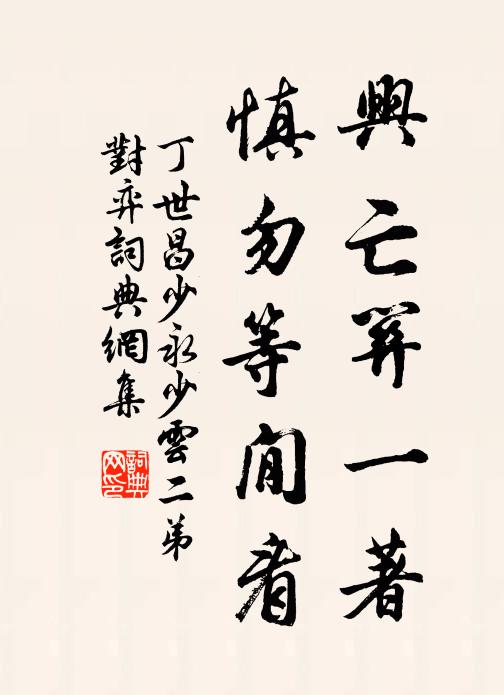 興亡關一著
慎勿等閒看
丁世昌少永少雲二弟
對弈詞典網集
詞典網印